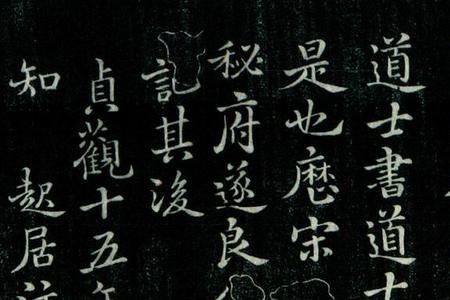 道士書道士
是也歷宋
秘府遂良
記其後
貞觀十五年
知 起居